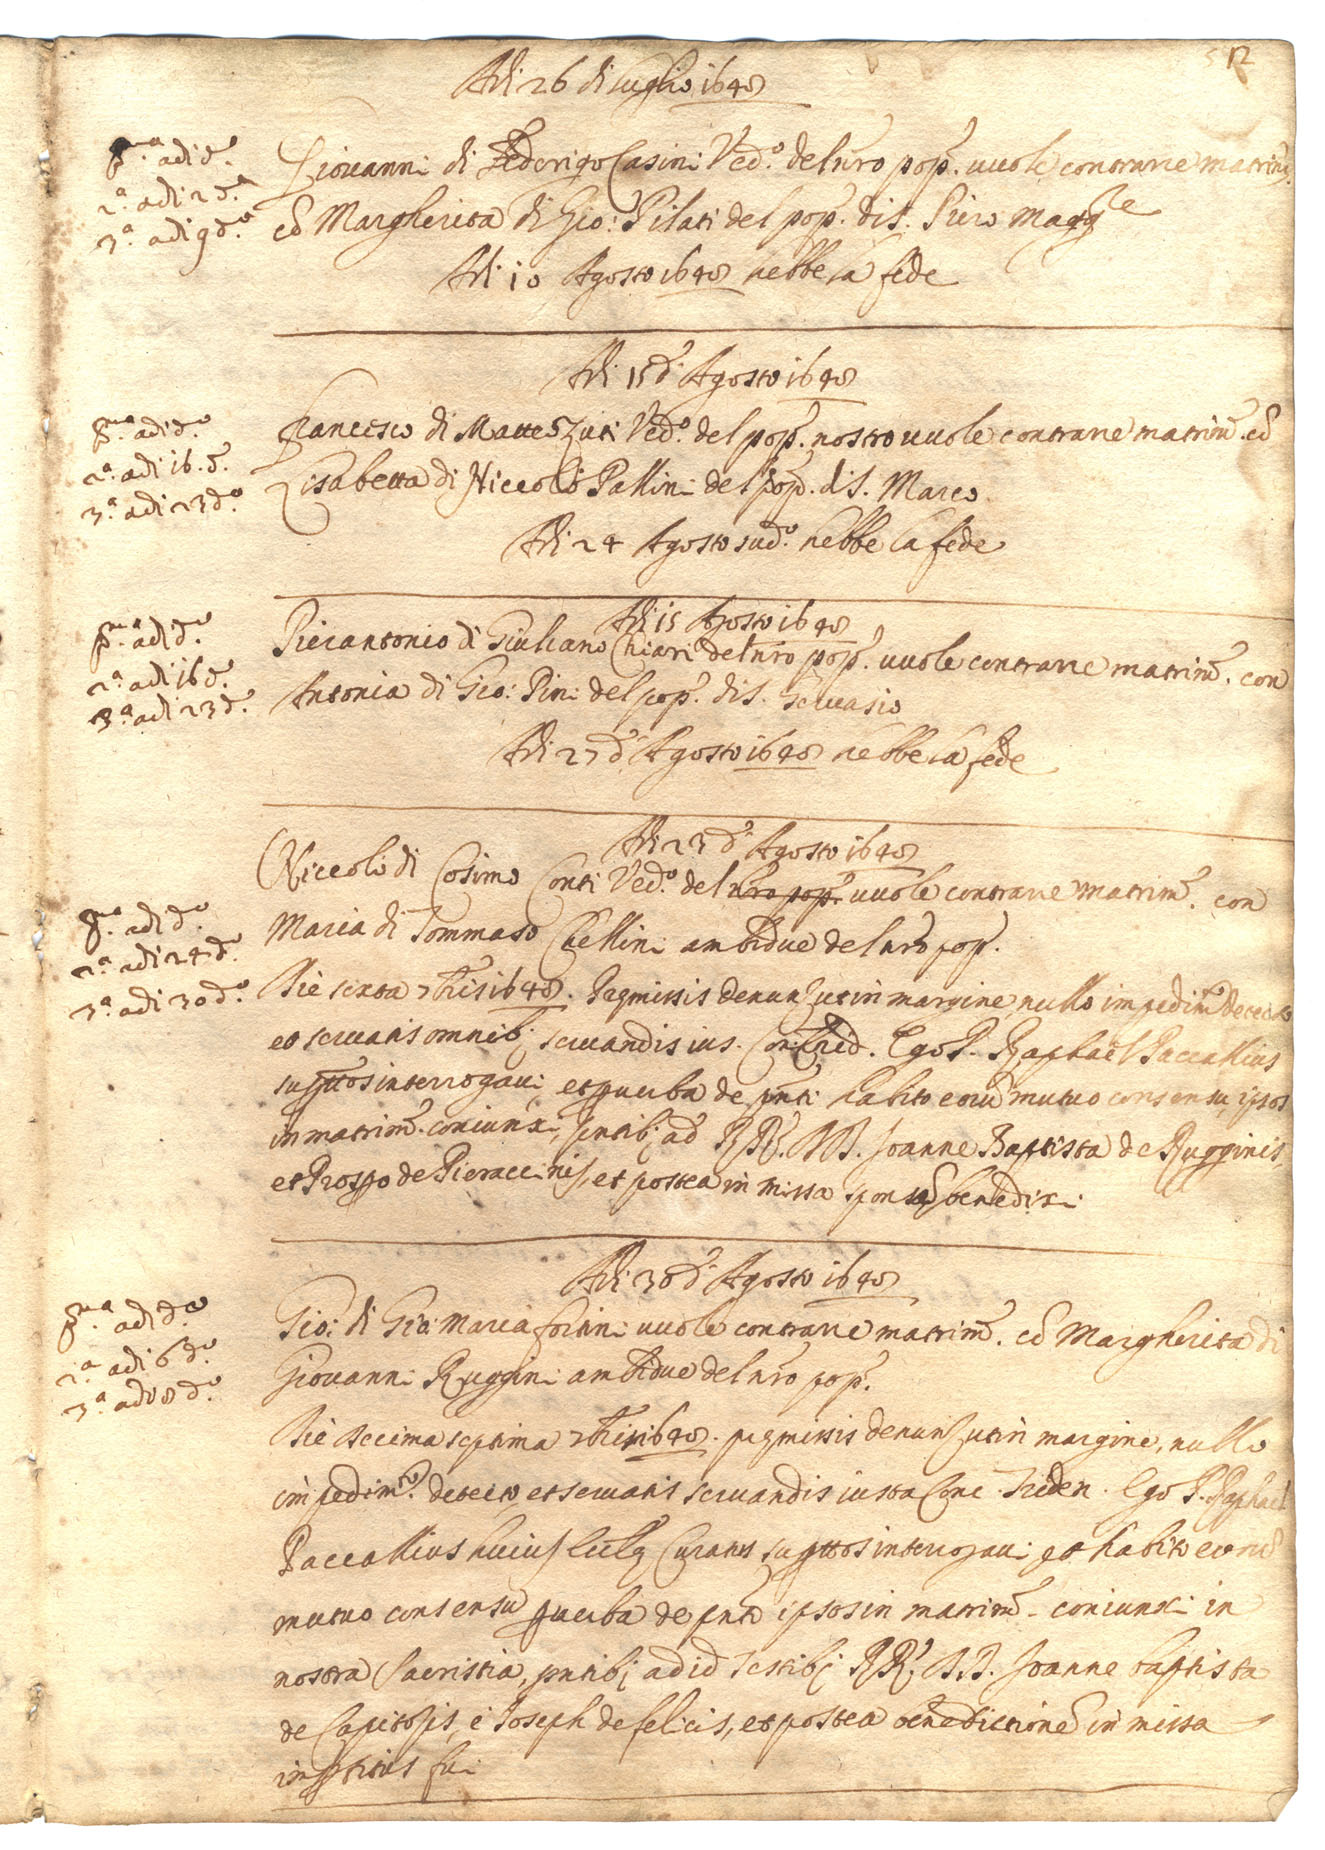 12
Adi 26 di Luglio 1648
p.ma adi d.o
2.a adi 2 d.o
3.a adi 9 d.o
Giovanni di Federigo Casini Ved.o del nro pop. vuole contrarre matrim.
cō Margherita di Gio: Pilati del pop. di S. Piero Magg.re
Adi 10 Agosto 1648 hebbe la fede
Adi 15 d. Agosto 1648
p.ma adi d.o
2.a adi 16 d.
3.a adi 23 d.o
Francesco di Matteo Zuti Ved.o del pop. nostro vuole contrarre matrim. cō
Lisabetta di Niccolò Pallini del pop. di S. Marco
Adi 24 Agosto sud.o hebbe la fede
Adi 15 Agosto 1648
p.ma adi d.o
2.a adi 16 d.
3.a adi 23 d.
Pierantonio di Giuliano Chiari del nro pop. vuole contrarre matrim. con
Antonia di Gio: Pini del pop. di S. Gervasio
Adi 27 d. Agosto 1648 hebbe la fede
Adi 23 d. Agosto 1648
p.ma adi d.o
2.a adi 24 d.
3.a adi 30 d.o
Niccolò di Cosimo Conti Ved.o del nro pop. vuole contrarre matrim. con
Maria di Tommaso Chellini ambidue del nro pop.
Die sexta 7bris 1648. Premissis denunz. ut in margine, nullo impedim.to detecto
et servatis omnib; servandis ius. Con. Trid. Ego P. Raphael Paccallius
supttos interrogavi et p verba de pnti habito eorū mutuo consensu ipsos
in matrim. coniunxi, pntib; ad RR. DD. Joanne Baptista de Rugginis,
et Prospo de Pieraccinis, et postea in missa spon benedixi
Adi 30 d. Agosto 1648
p.ma adi d.o
2.a adi 6 d.o
3.a adi 8 d.o
Gio: di Gio: Maria forini vuole contrarre matrim. cō Margherita di
Giovanni Ruggini ambidue del nro pop.
Die decima septima 7bris 1648. premissis denunz. ut in margine, nullo
impedim.to detecto, et servatis servandis iusta Conc. Triden. Ego P. Raphael
Paccallius huius Curatus supttos interrogavi et habito eorū
mutuo consensu p verba de pnti ipsos in matrim. coniunxi in
nostra Sacristia, pntib; ad id testib; RR. DD. Joanne baptista
de Capitosis, e Joseph de felicis, et postea benedictionē in missa
impttitus fui